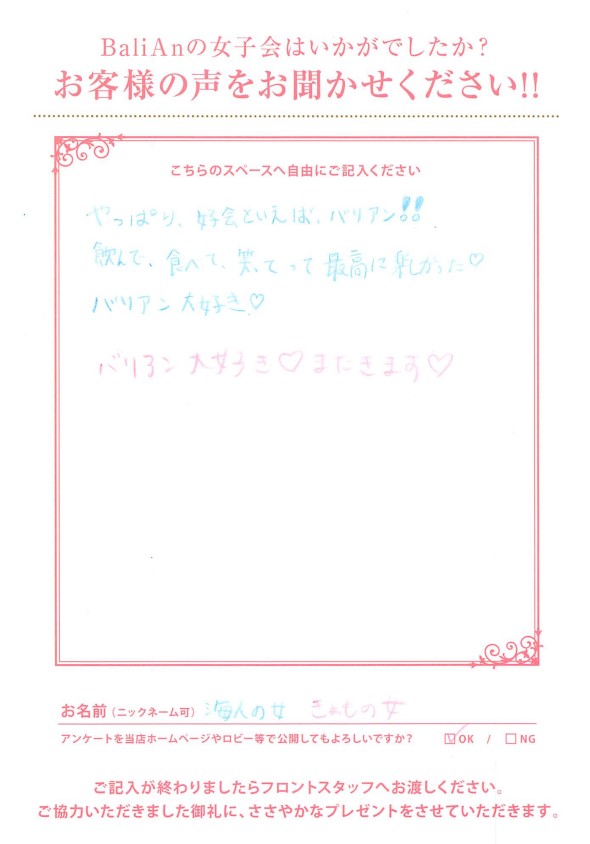 BaliAnの女子会はいかがでしたか?
お客様の声をお聞かせください!!
こちらのスペースへ自由にご記入ください
やっぱり、女子会といえば、バリアン!!
飲んで、食べて、笑って って 最高に楽かった♡
バリアン 大好き♡
バリアン 大好き♡ またきます♡
お名前(ニックネーム可) 海人の女 の女
アンケートを当店ホームページやロビー等で公開してもよろしいですか? ☑OK / □NG
ご記入が終わりましたらフロントスタッフへお渡しください。
ご協力いただきました御礼に、ささやかなプレゼントをさせていただきます。